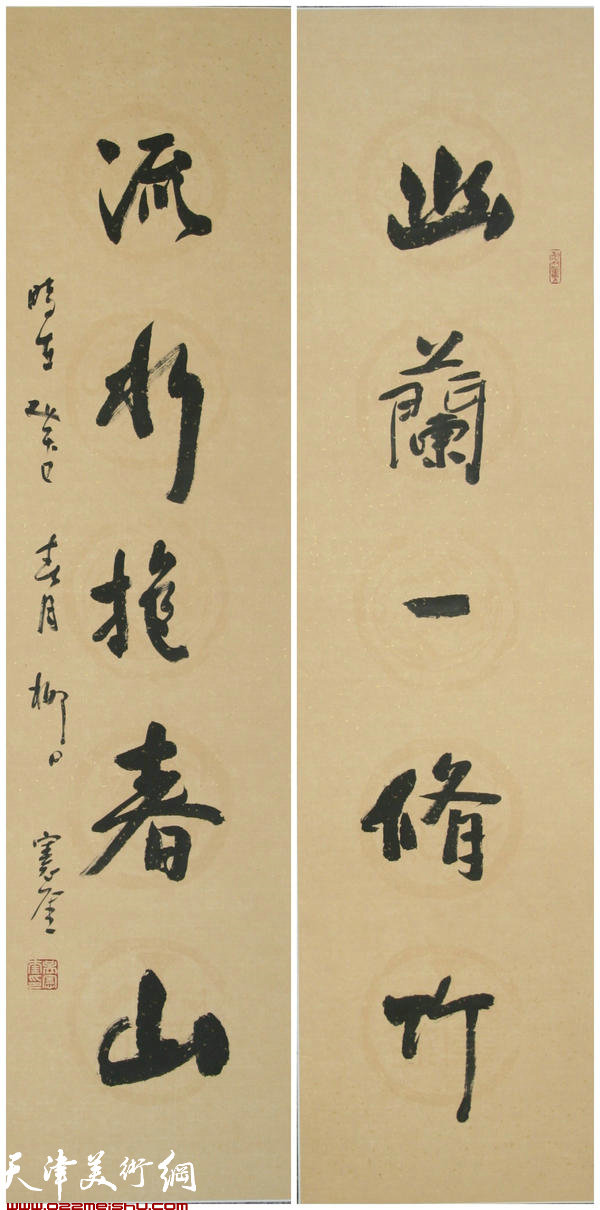 幽蘭一脩竹
流水抱春山
時在癸巳春月柳日
天津美術網
www.022meishu.com